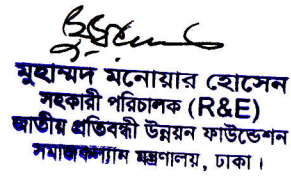 মুহাম্মদ মনোয়ার হোসেন
সহকারী পরিচালক (R&E)
জাতীয় প্রতিবন্ধী উন্নয়ন ফাউন্ডেশন
সমাজকল্যাণ মন্ত্রণালয়, ঢাকা।